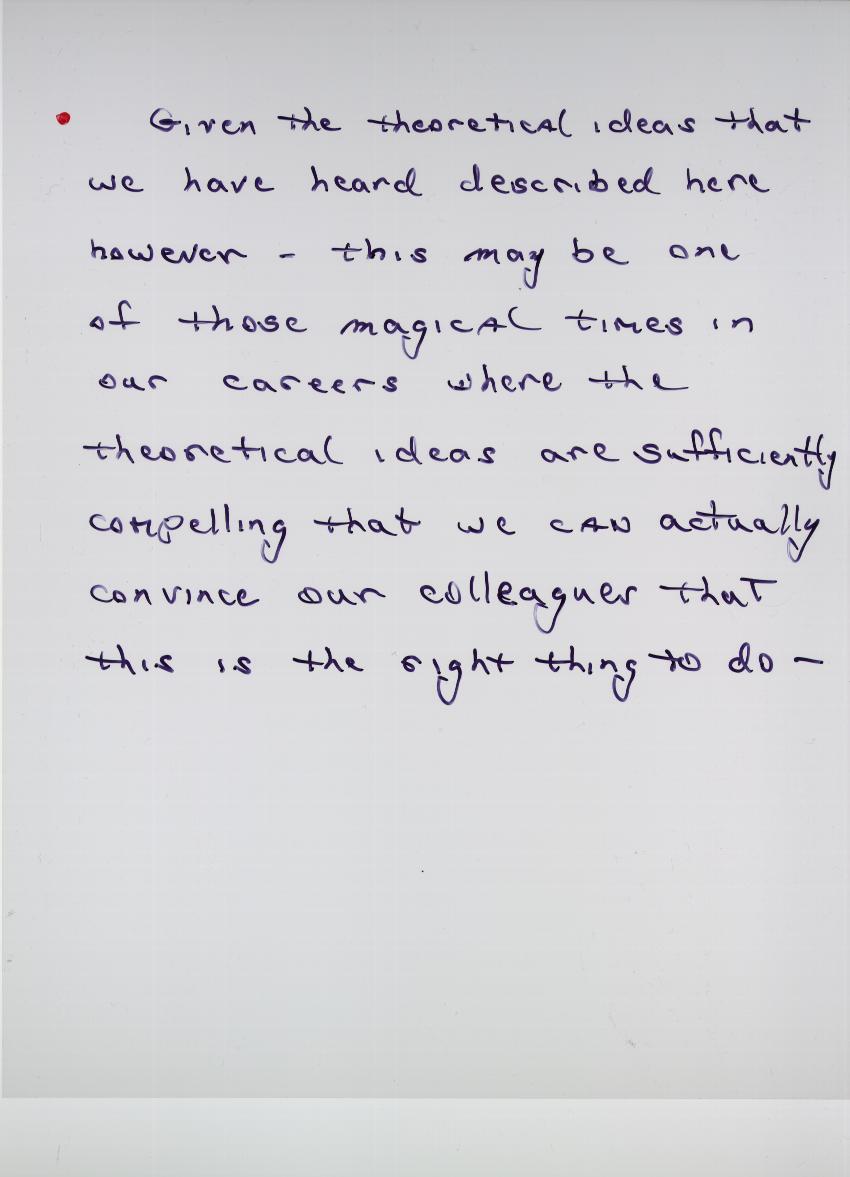 • Given the theoretical ideas that
we have heard described here
however - this may be one
of those magical times in
our careers where the
theoretical ideas are sufficiently
compelling that we can actually
convince our colleagues that
this is the right thing to do -